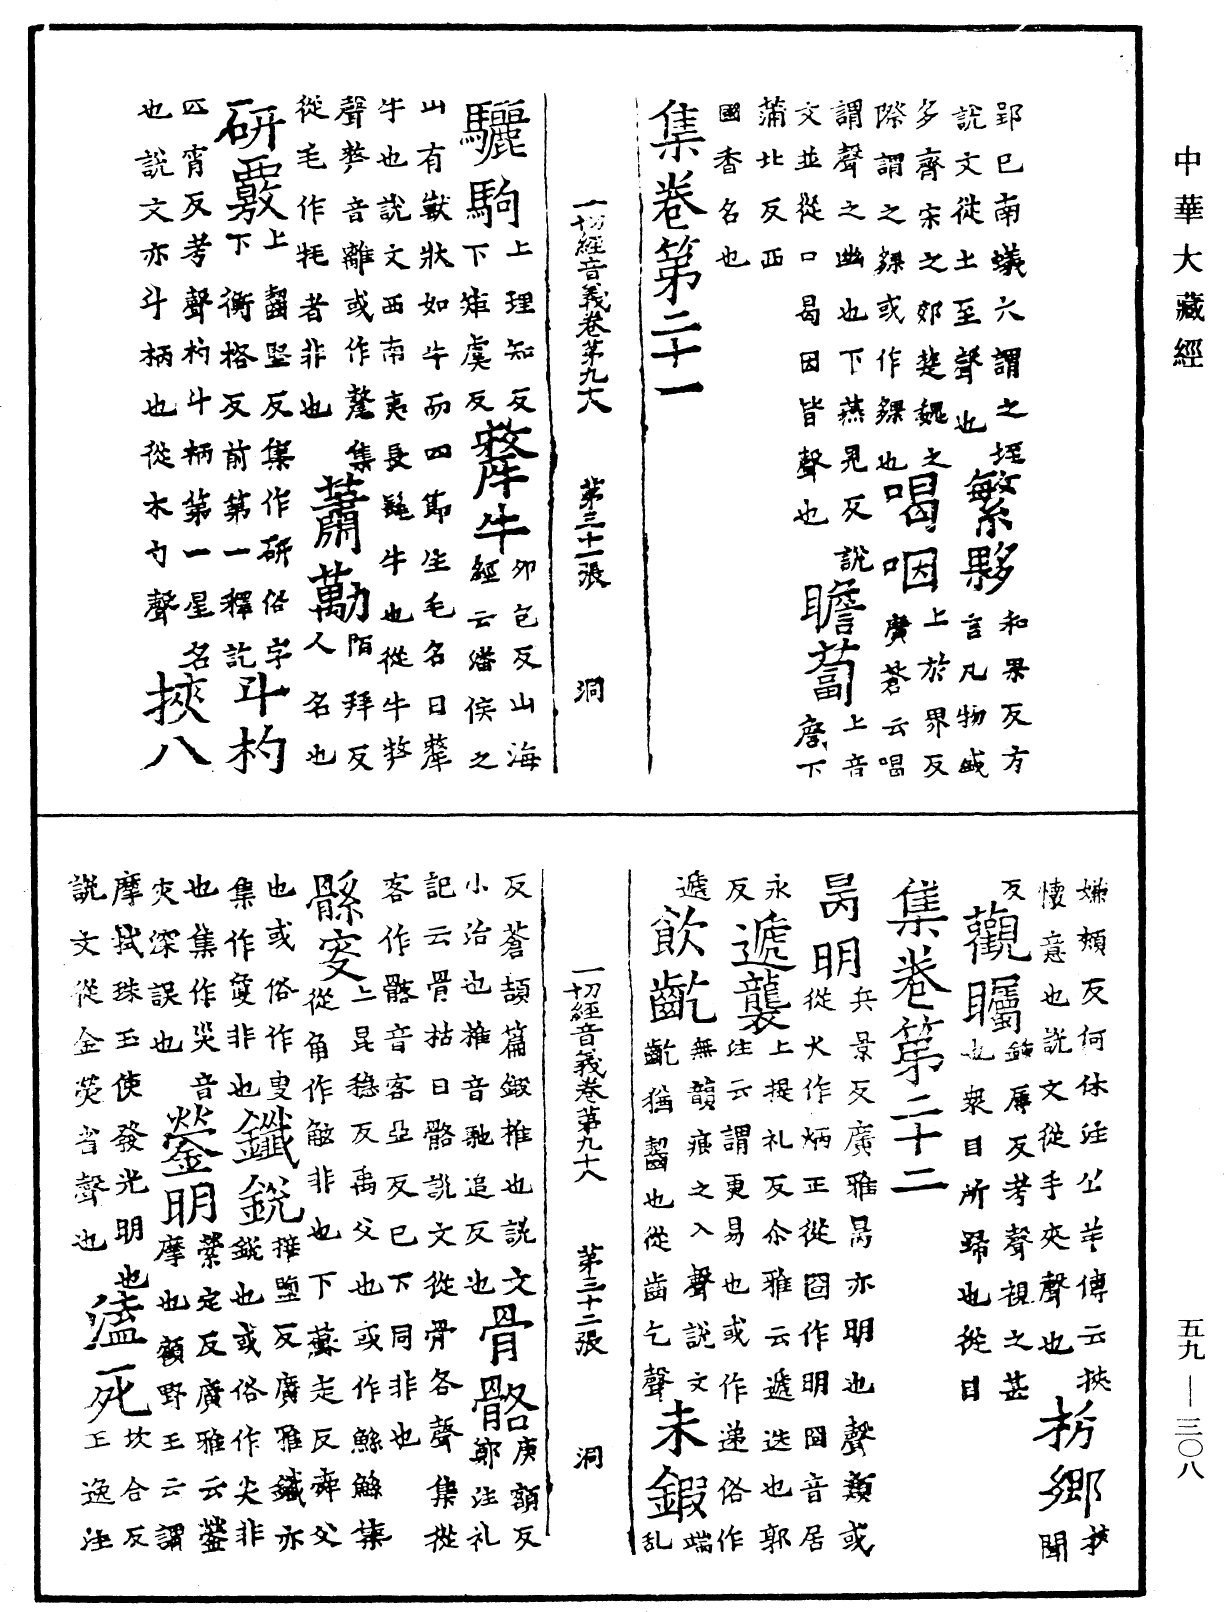 中華大藏經
郢已南蟻六謂之垤
說文從土至聲也
繁夥
和果反方言凡物盛
多齊宋之郊楚魏之
際謂之夥或作錁也
喝咽
上於界反廣蒼云喝
謂聲之幽也下燕見反說
文並從口曷因皆聲也
瞻蔔
上音詹下
蒲北反西
國香名也
集卷第二十一
一切經音義卷第九十八 第三十一張 洞
驪駒
上理知反
下矩虞反
犛牛
夘包反山海
經云潘侯之
山有獸狀如牛而四節生毛名曰犛
牛也說文西南夷長髦牛也從牛𠩺
聲𠩺音離或作氂集
從毛作牦者非也
蕭勱
陌拜反
人名也
研覈
上齧堅反集作硏俗字
下衡格反前第一釋訖
斗杓
匹宵反考聲杓斗柄第一星名
也說文亦斗柄也從木勺聲
挾八
嫌頰反何休注公羊傳云挾
懷意也說文從手夾聲也
枌鄉
扶聞
反
觀矚
鍾辱反考聲視之甚
也衆目所歸也從目
集卷第二十二
昺明
兵景反廣雅昺亦明也聲類或
從火作炳正從囧作明囧音居
永
反
遞襲
上提礼反尒雅云遞迭也郭
注云謂更易也或作递俗作
遞
飲齕
無韻痕之入聲說文
齕猶齧也從齒乞聲
未鍜
端
乱
反蒼頡篇鍛椎也說文
小冶也椎音馳追反也
骨骼
庚額反
鄭注礼
記云骨枯曰骼說文從骨各聲集從
客作髂音客亞反已下同非也
鯀㝜
上昆穩反禹父也或作鯀鮌集
從角作䚨非也下蘇走反舜父
也或俗作叟
集作𡨥非也
鑯銳
摧墮反廣雅鑯亦
銳也或俗作尖非
也集作災音
灾深誤也
鎣明
縈定反廣雅云鎣
摩也顧野王云謂
摩拭珠玉使發光明也
說文從金熒省聲也
溘死
坎合反
王逸注
一切經音義卷第九十八 第三十二張 洞
五九—三〇八